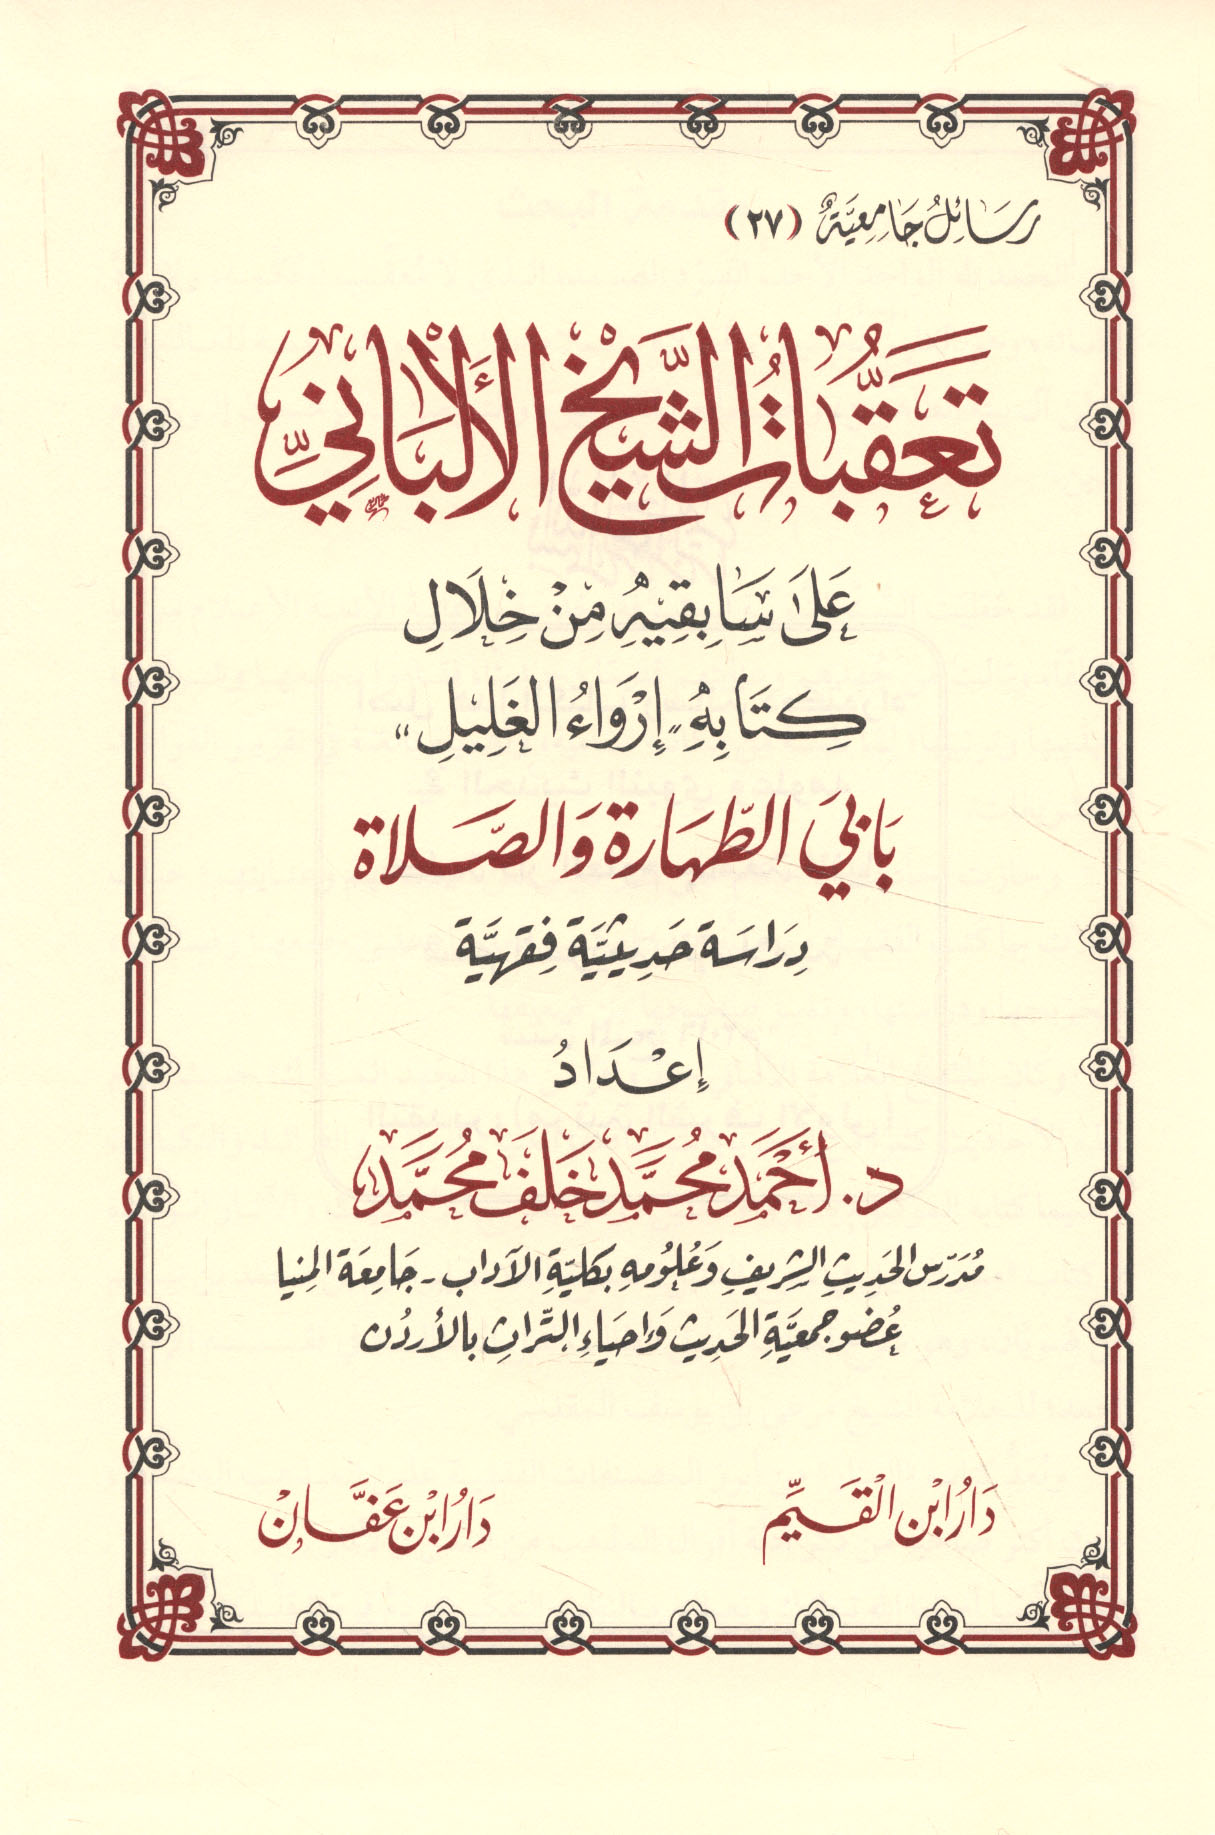 رَسَائِلُ جَامِعِيَّةٌ (٢٧)
تَعَقُّبَاتُ الشَّيْخِ الأَلْبَانِيِّ
عَلَىٰ سَابِقِيهِ مِنْ خِلَالِ
كِتَابِهِ «إِرْوَاءُ الغَلِيلِ»
بَابَي الطَّهَارَةِ وَالصَّلَاةِ
دِرَاسَة حَدِيثِيَّة فِقهِيَّة
إِعْدَادُ
د. أَحْمَد مُحَمَّد خَلَف مُحَمَّد
مُدَرّس الحَدِيثِ الشَّرِيفِ وَعُلُومِهِ بكليّةِ الآدَاب - جَامِعَة المِنيا
عُضو جمعيَّةِ الحَدِيثِ وَإحيَاءِ التّراثِ بالأردُن
دَارُ ابْنِ القَيِّم
دَارُ ابْنِ عَفَّانْ